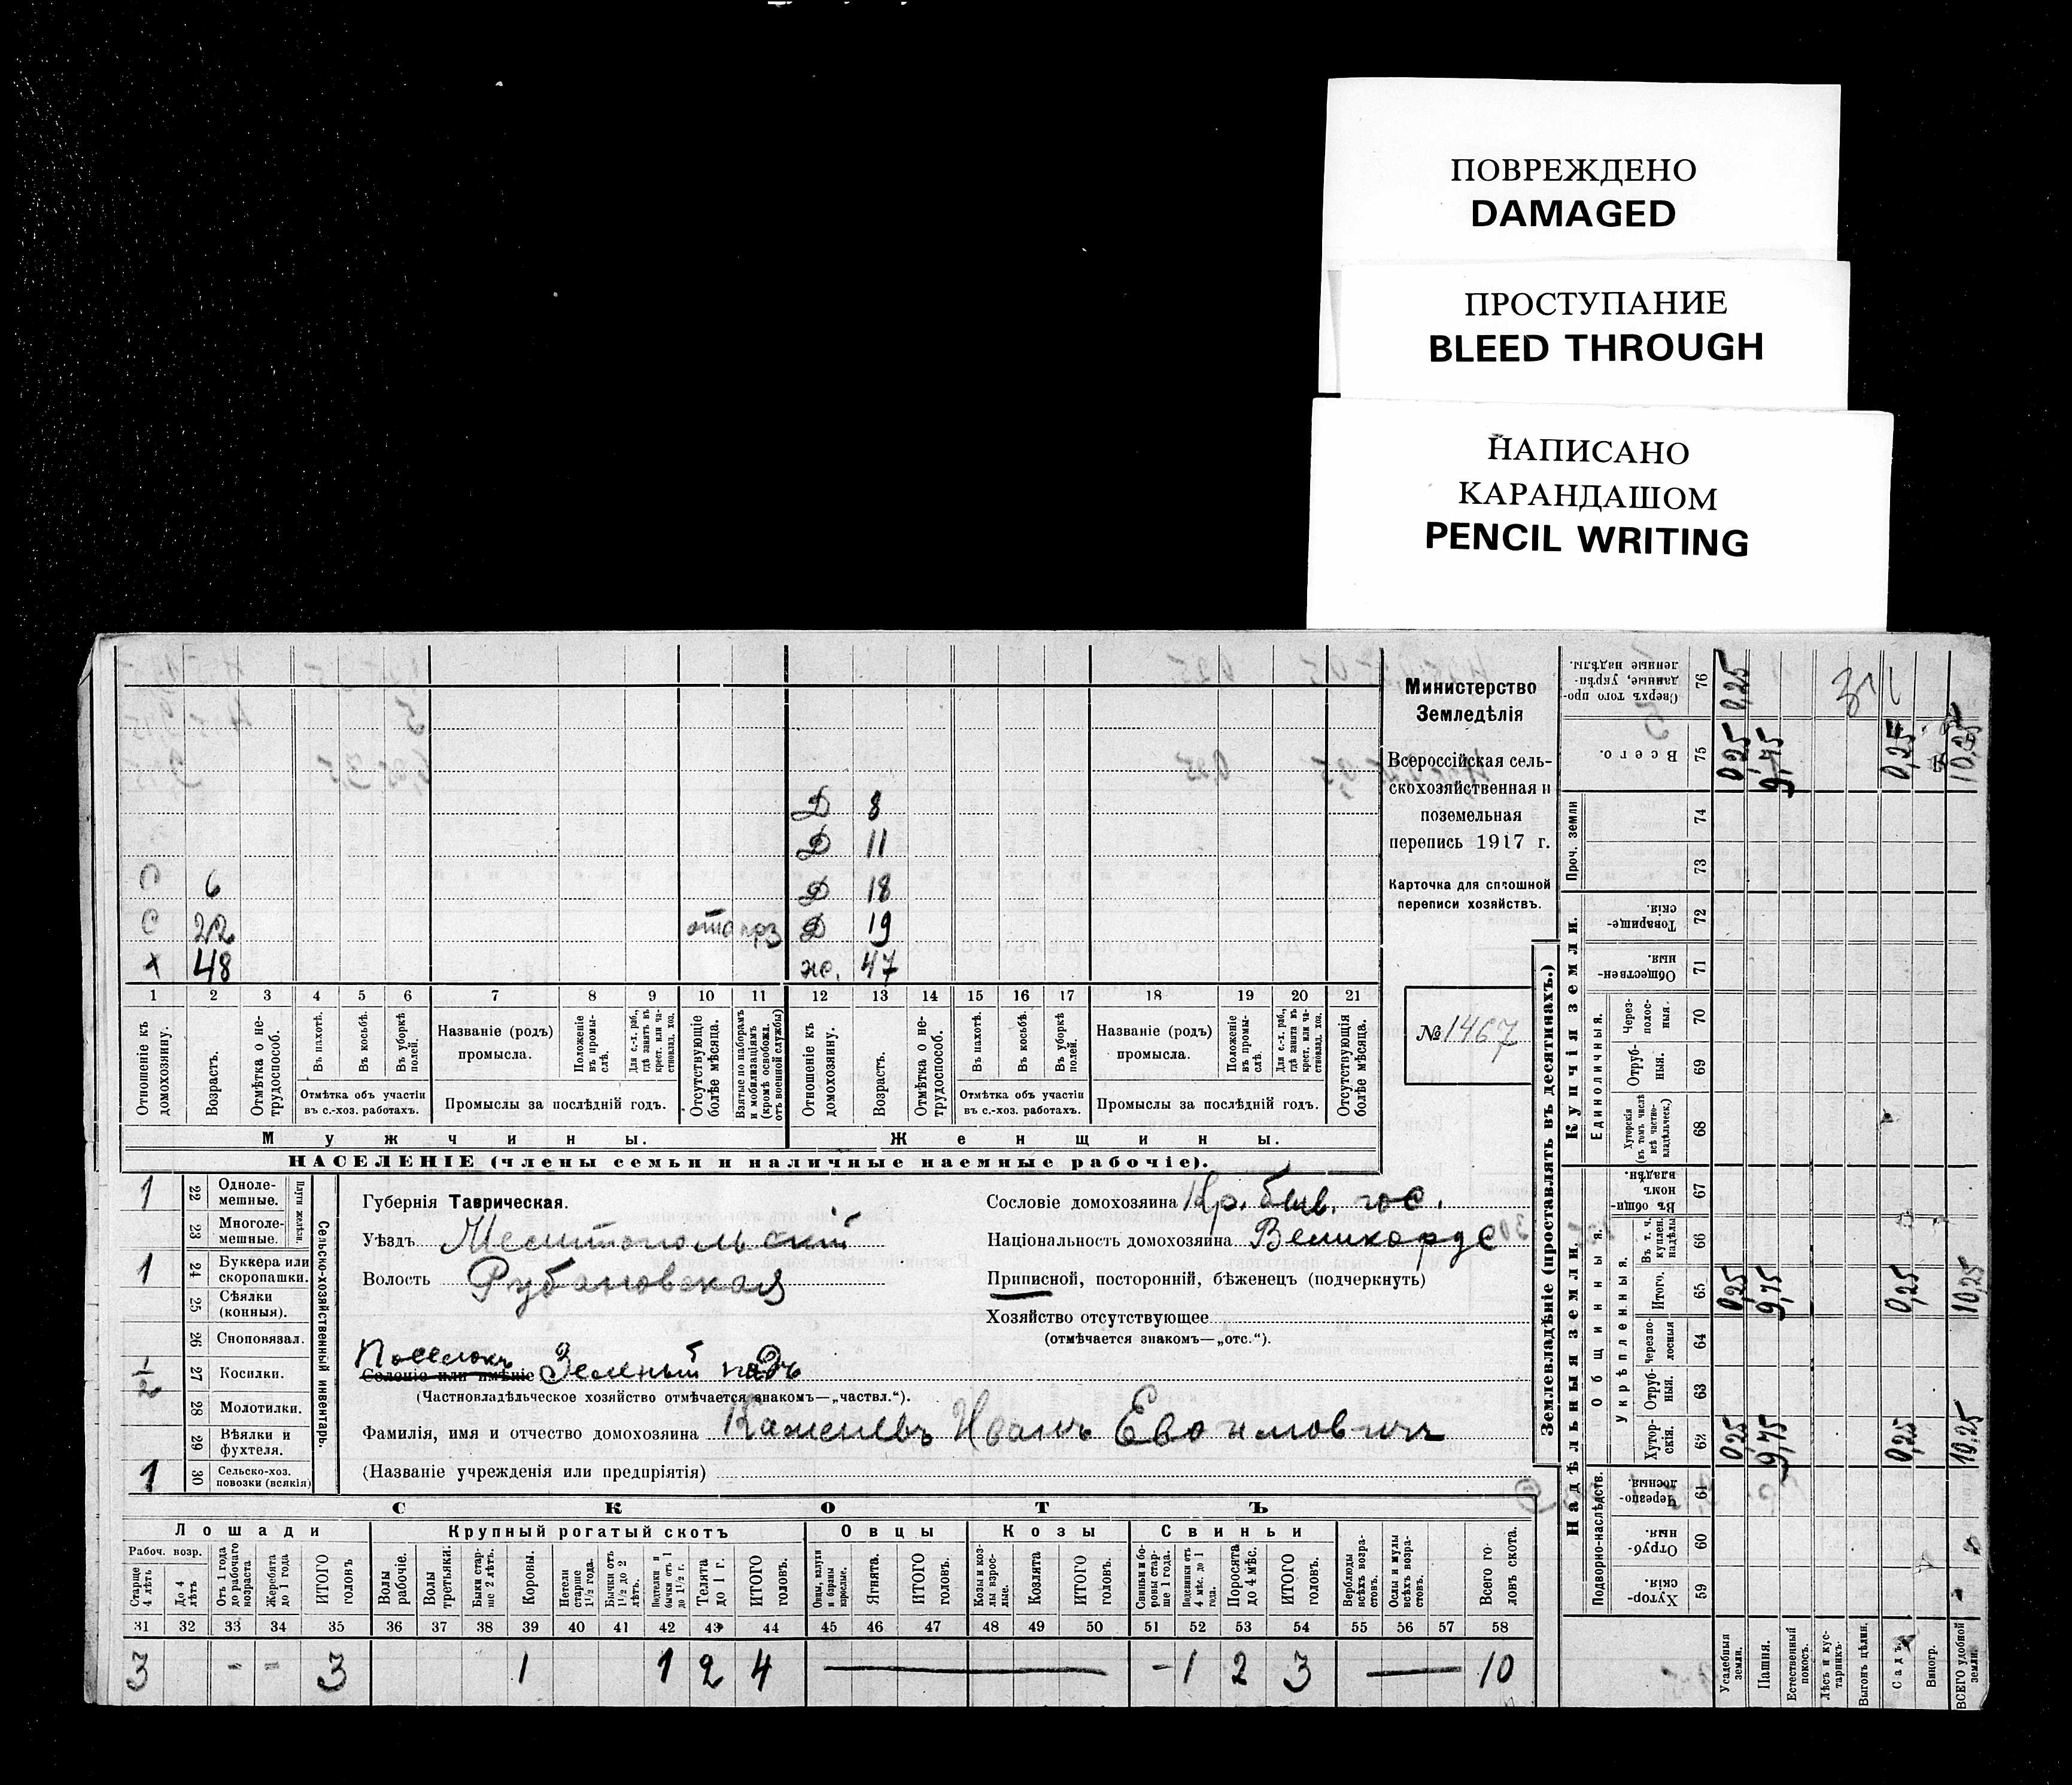 ПОВРЕЖДЕНО
DAMAGED
ПРОСТУПАНИЕ
BLEED THROUGH
НАПИСАНО
КАРАНДАШОМ
PENCIL WRITING
Министерство
Земледѣлія
Всероссійская сель-
скохозяйственная и
поземельная
перепись 1917 г.
Карточка для сплошной
переписи хозяйствъ.
№ 1467
Д 8
Д 11
С 6 Д 18
С 22 Д 19
х 48 ж. 47
1 2 3 4 5 6 7 8 9 10 11 12 13 14 15 16 17 18 19 20 21
Отношеніе къ домохозяину.
Возрастъ.
Отмѣтка о не-трудоспособ.
Въ пахотѣ.
Въ косьбѣ.
Въ уборкѣ полей.
Отмѣтка объ участіи въ с.-хоз. работахъ.
Названіе (родъ) промысла.
Положеніе въ промы-слѣ.
Для с.-х. раб., гдѣ занятъ въ крест. или ча-стновлад. хоз.
Промыслы за послѣдній годъ.
Отсутствующіе болѣе мѣсяца.
Взятые по наборамъ и мобилизаціямъ (кромѣ освобожд. отъ военной службы)
Отношеніе къ домохозяину.
Возрастъ.
Отмѣтка о не-трудоспособ.
Въ пахотѣ.
Въ косьбѣ.
Въ уборкѣ полей.
Отмѣтка объ участіи въ с.-хоз. работахъ.
Названіе (родъ) промысла.
Положеніе въ промы-слѣ.
Для с.-х. раб., гдѣ занята въ крест. или ча-стновлад. хоз.
Промыслы за послѣдній годъ.
Отсутствующія болѣе мѣсяца.
Мужчины. Женщины.
НАСЕЛЕНІЕ (члены семьи и наличные наемные рабочіе).
Сельско-хозяйственный инвентарь.
Плуги желѣз.
1 22 Одноле-мешные.
23 Многоле-мешные.
1 24 Буккера или скоропашки.
25 Сѣялки (конныя).
26 Сноповязал.
1/2 27 Косилки.
28 Молотилки.
29 Вѣялки и фухтеля.
1 30 Сельско-хоз. повозки (всякія)
Губернія Таврическая.
Уѣздъ Мелитопольскій
Волость Рубановская
Поселокъ
Селеніе или имѣніе Зеленый
(Частновладѣльческое хозяйство отмѣчается знакомъ—„частвл.“).
Фамилія, имя и отчество домохозяина Иванъ
(Названіе учрежденія или предпріятія)
Сословіе домохозяина Кр. быв. гос.
Національность домохозяина
Приписной, посторонній, бѣженецъ (подчеркнуть)
Хозяйство отсутствующее
(отмѣчается знакомъ—„отс.“).
СКОТЪ
Лошади Крупный рогатый скотъ Овцы Козы Свиньи
Рабоч. возр.
Старше 4 лѣтъ
До 4 лѣтъ
Отъ 1 года до рабочаго возраста
Жеребята до 1 года
ИТОГО головъ
Волы рабочіе.
Волы третьяки.
Быки стар-ше 2 лѣтъ.
Коровы.
Нетели старше 1½ года.
Бычки отъ 1½ до 2 лѣтъ.
Подтелки и бычки отъ 1 до 1½ г.
Телята до 1 г.
ИТОГО головъ.
Овцы, валухи и бараны взрослые.
Ягнята.
ИТОГО головъ.
Козы и коз-лы взрос-лые.
Козлята
ИТОГО головъ.
Свиньи и бо-ровы стар-ше 1 года.
Подсвинки отъ 4 мѣс. до 1 года.
Поросята до 4 мѣс.
ИТОГО головъ.
Верблюды всѣхъ возра-стовъ.
Ослы и мулы всѣхъ возра-стовъ.
Всего го-ловъ скота.
31 32 33 34 35 36 37 38 39 40 41 42 43 44 45 46 47 48 49 50 51 52 53 54 55 56 57 58
3 3 1 1 2 4 1 2 3 10
Землевладѣніе (проставлять въ десятинахъ.)
Надѣльныя земли. Купчія земли. Проч. земли
Подворно-наслѣдств. Общинныя. Единоличныя.
Укрѣпленныя.
Хутор-скія 59
Отруб-ныя. 60
Черезпо-лосныя. 61
Хутор-скія. 62
Отруб-ныя. 63
Черезпо-лосныя 64
Итого. 65
Въ т. ч. куплен. надѣлы 66
Въ общи-номъ владѣн. 67
Хуторскія (въ томъ числѣ всѣ частно-владѣльческ.) 68
Отруб-ныя. 69
Через-полос-ныя 70
Обществен-ныя. 71
Товарище-скія. 72
73
74
Всего. 75
Сверхъ того про-данные, укрѣп-ленные надѣлы. 76
Усадебныя земли. 0,25 0,25 0,25 0,25
Пашня. 9,75 9,75 9,75
Естественный покосъ.
Лѣсъ и кус-тарникъ.
Выгонъ цѣлин.
Садъ. 0,25 0,25 0,25
Виногр.
ВСЕГО удобной земли. 10,25 10,25 10,25